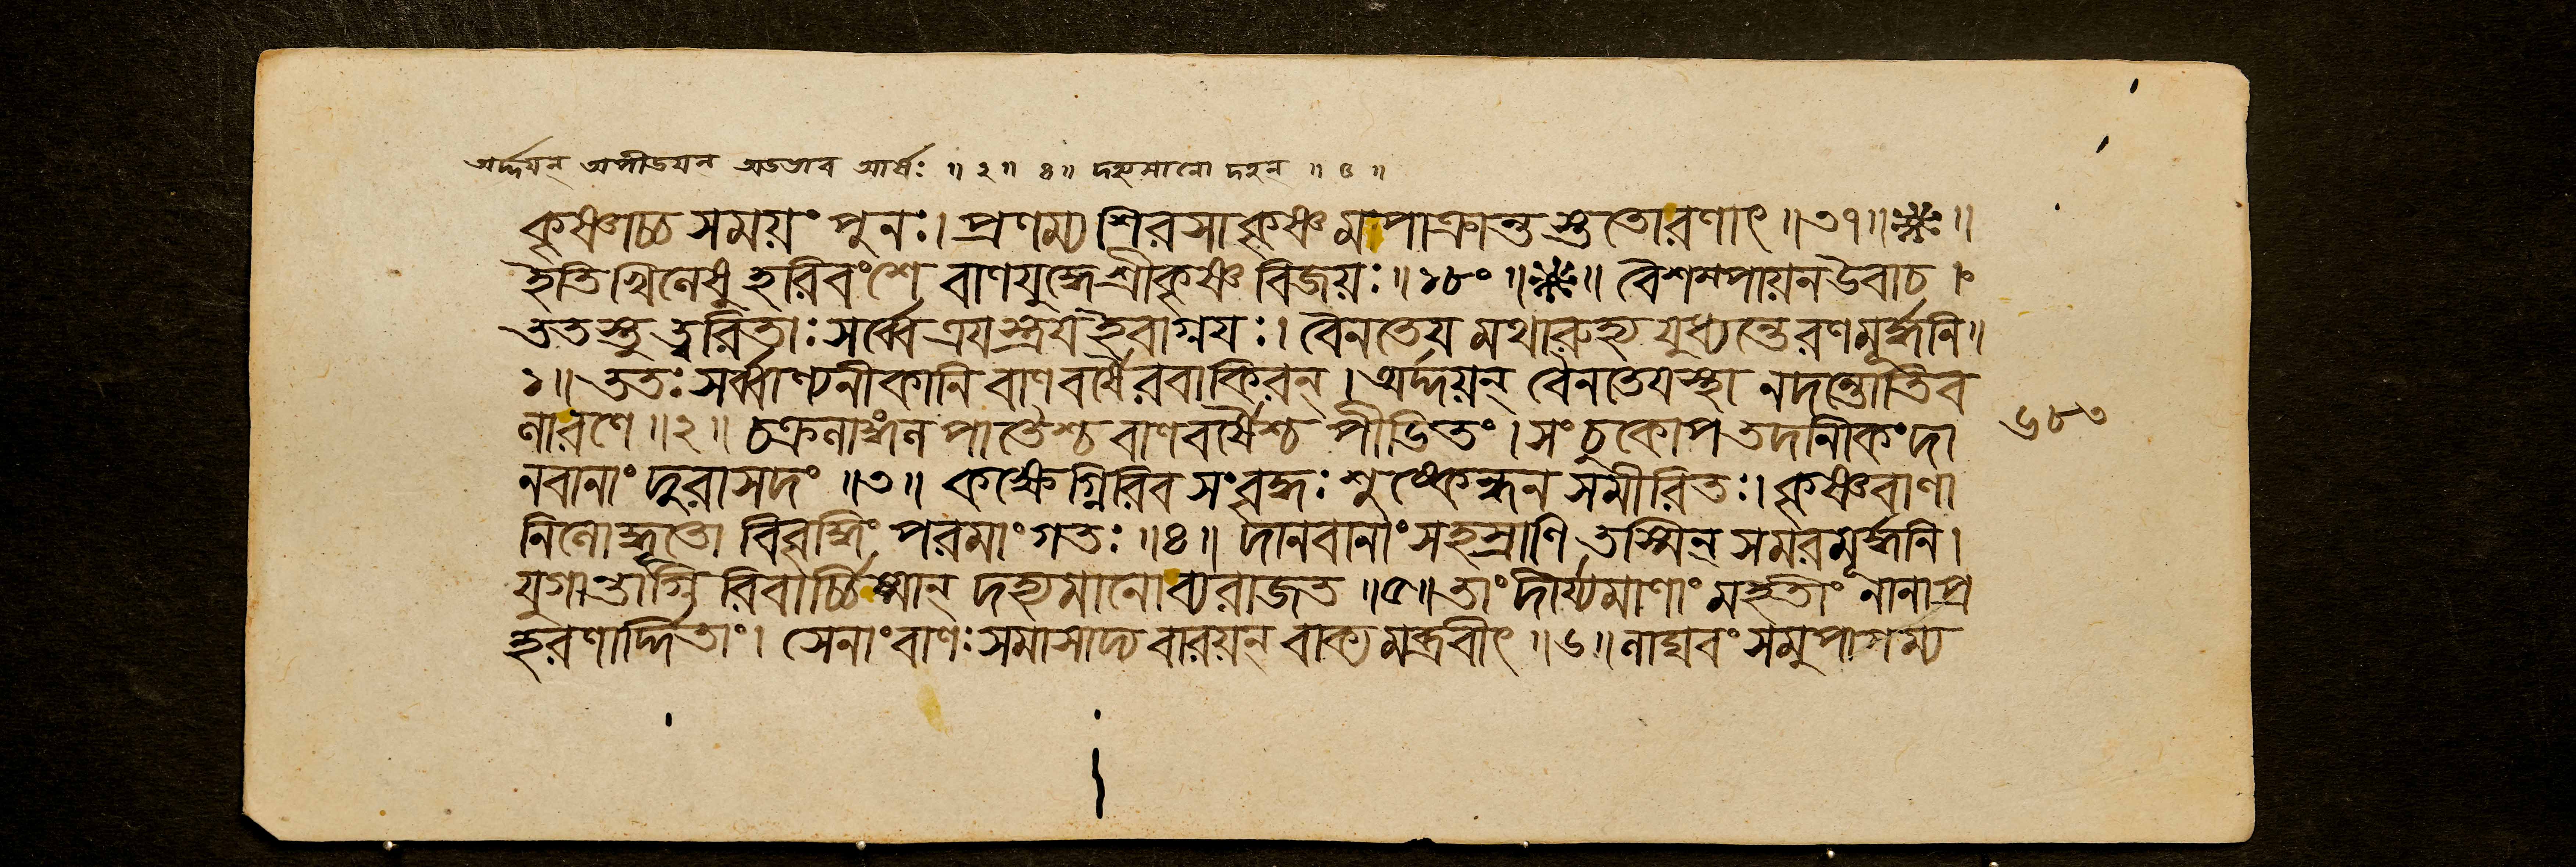 অর্দ্দয়ন্ অপীডয়ন্ অডভাব আর্ষঃ ॥ ২ ॥ ৪ ॥ দহ্যমানো দহন্ ॥ ৫ ॥
কৃষ্ণাচ্চ সময়ং পুনঃ। প্রণম্য শিরসা কৃষ্ণমপাক্রান্তস্ততোরণাৎ ॥ ৩৭ ॥ ※ ॥
ইতি খিলেষু হরিবংশে বাণযুদ্ধে শ্রীকৃষ্ণ বিজয়ঃ ॥ ১৮০ ॥ ※ ॥ বৈশম্পায়ন উবাচ ।
ততস্তু ত্বরিতাঃ সর্ব্বে ত্রয়স্ত্রয় ইবাগ্নয়ঃ। বৈনতেয়মথারুহ্য যুধ্যন্তে রণমূর্দ্ধনি ॥
১ ॥ ততঃ সর্ব্বাণ্যনীকানি বাণবর্ষৈরবাকিরন্ । অর্দ্দয়ন্ বৈনতেয়স্থা নদন্তোতিব
লারণে ॥ ২ ॥ চক্রলাঙ্গলপাতৈশ্চ বাণবর্ষৈশ্চ পীডিতং । সংচুকোপ তদনীকং দা
নবানাং দুরাসদং ॥ ৩ ॥ কক্ষেগ্নিরিব সংবৃদ্ধঃ শুষ্কেন্ধনসমীরিতঃ। কৃষ্ণবাণা
নিলোদ্ধূতো বিবৃদ্ধিং পরমাং গতঃ ॥ ৪ ॥ দানবানাং সহস্রাণি তস্মিন্ সমরমূর্দ্ধনি।
যুগান্তাগ্নিরিবার্চ্চিষ্মান্ দহ্যমানো ব্যরাজত ॥ ৫ ॥ তাং দীর্য্যমাণাং মহতীং নানাপ্র
হরণার্দ্দিতাং। সেনাং বাণঃ সমাসাদ্য বারয়ন্ বাক্যমব্রবীৎ ॥ ৬ ॥ লাঘবং সমুপাগম্য
৬৪৩